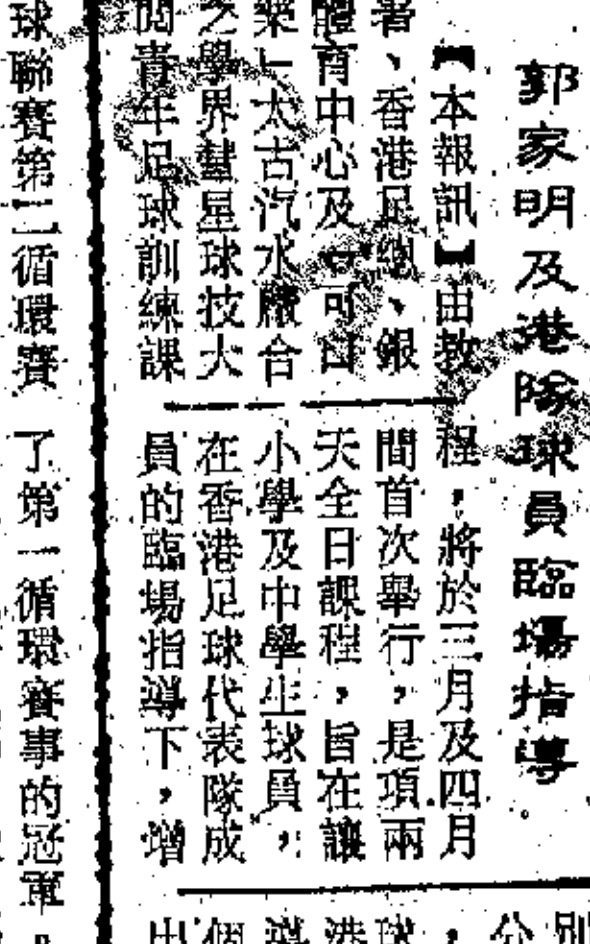 郭家明及港隊球員臨場指導
【本報訊】由教
者、香港足總、銀
體育中心及「可口
樂」太古汽水廠合
之學界彗星球技大
閱青年足球訓練課
程，將於三月及四月
間首次舉行，是項兩
天全日課程，旨在讓
小學及中學生球員，
在香港足球代表隊成
員的臨場指導下，增
球聯賽第二循環賽
了第一循環賽事的冠軍。